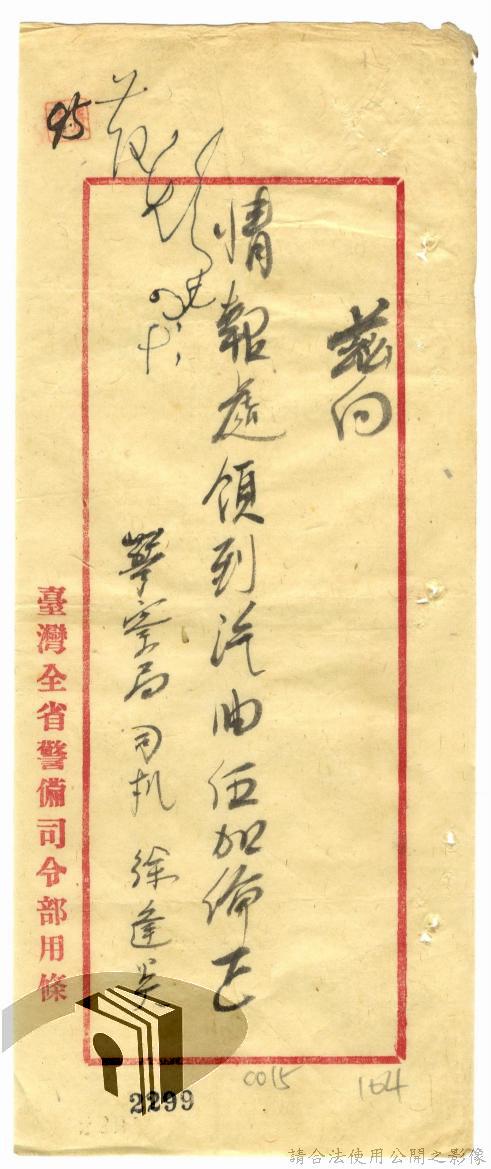 茲向
情報處領到汽油伍加倫正
警察局司机 徐逢吳
臺灣全省警備司令部用條
95
2299
0015
164
請合法使用公開之影像